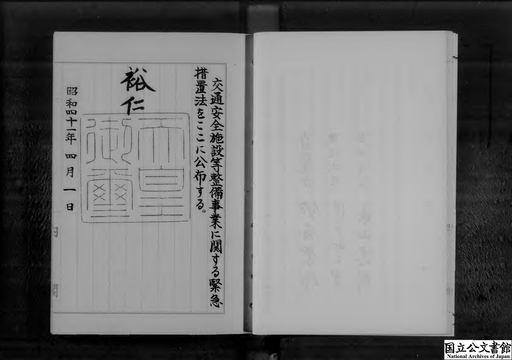 交通安全施設等整備事業に関する緊急
措置法をここに公布する。
裕仁
天皇
御璽
昭和四十一年四月一日
国立公文書館
National Archives of Japan